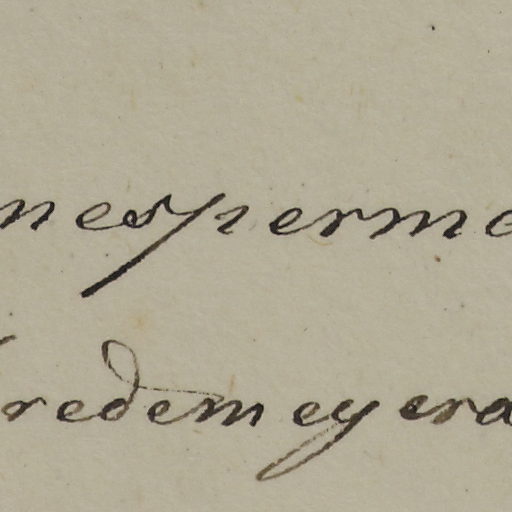 nesperma
redemeyera